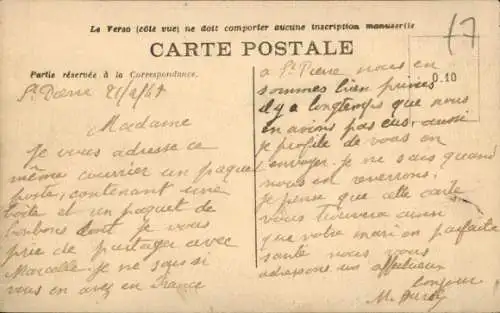 Le Verso (côté vue) ne doit comporter aucune inscription manuscrite
CARTE POSTALE
Partie réservée à la Correspondance.
St Pierre 21/2/41
Madame
Je vous adresse ce
même courrier un paquet
poste, contenant une
boîte et un paquet de
bonbons dont je vous
prie de partager avec
Marcelle. je ne sais si
vous en avez en France
17
0.10
a St Pierre nous en
sommes bien privées
il y a longtemps que nous
en avions pas eus. aussi
je profite de vous en
envoyer. je ne sais quand
nous en reverrons.
je pense que cette carte
vous trouvera ainsi
que votre mari en parfaite
santé nous vous
adressons un affectueux
bonjour
M.